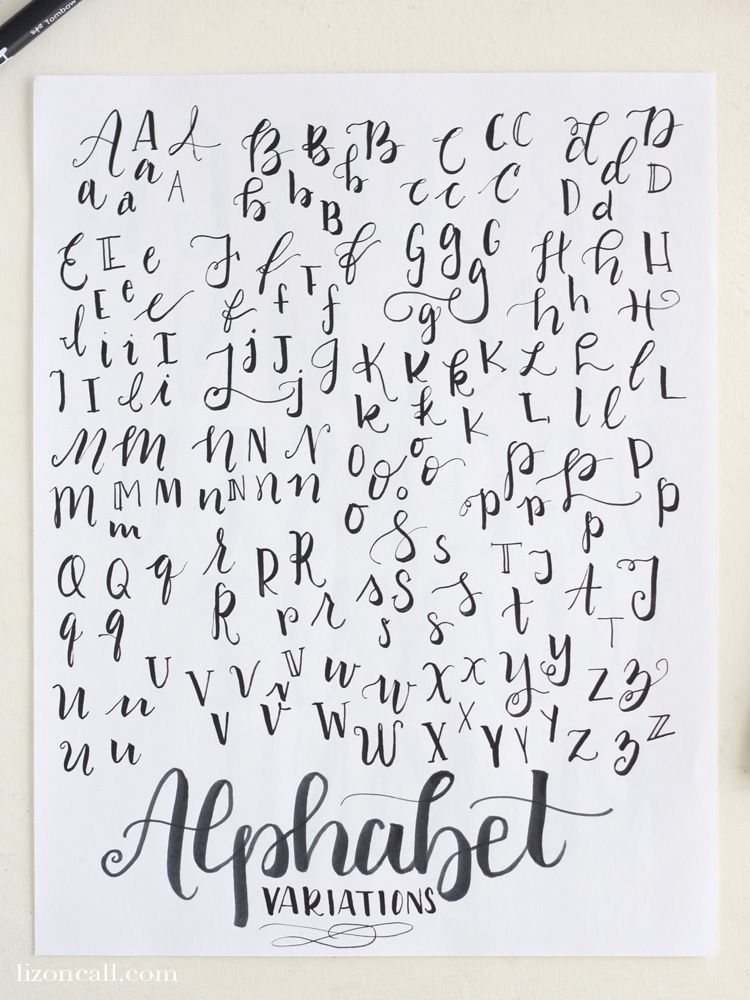 Tombow
A A A B B B C C C d D
a a a A b b b B c c C D d d D
E E e F f T f G g G H h H
E e e f f f g g h h H
i i i I J j J g K K k K L L l L
I I l i j k k K L l l
M M M n N N O o o p P P
M M M m n N n n O o o p p p p
Q Q q r R R S s T J A J
q q R p r s S s s s t T
U V V V v w w X x y y Z z
u u V v W W X x Y Y Y Z z Z
u u
Alphabet
VARIATIONS
lizoncall.com